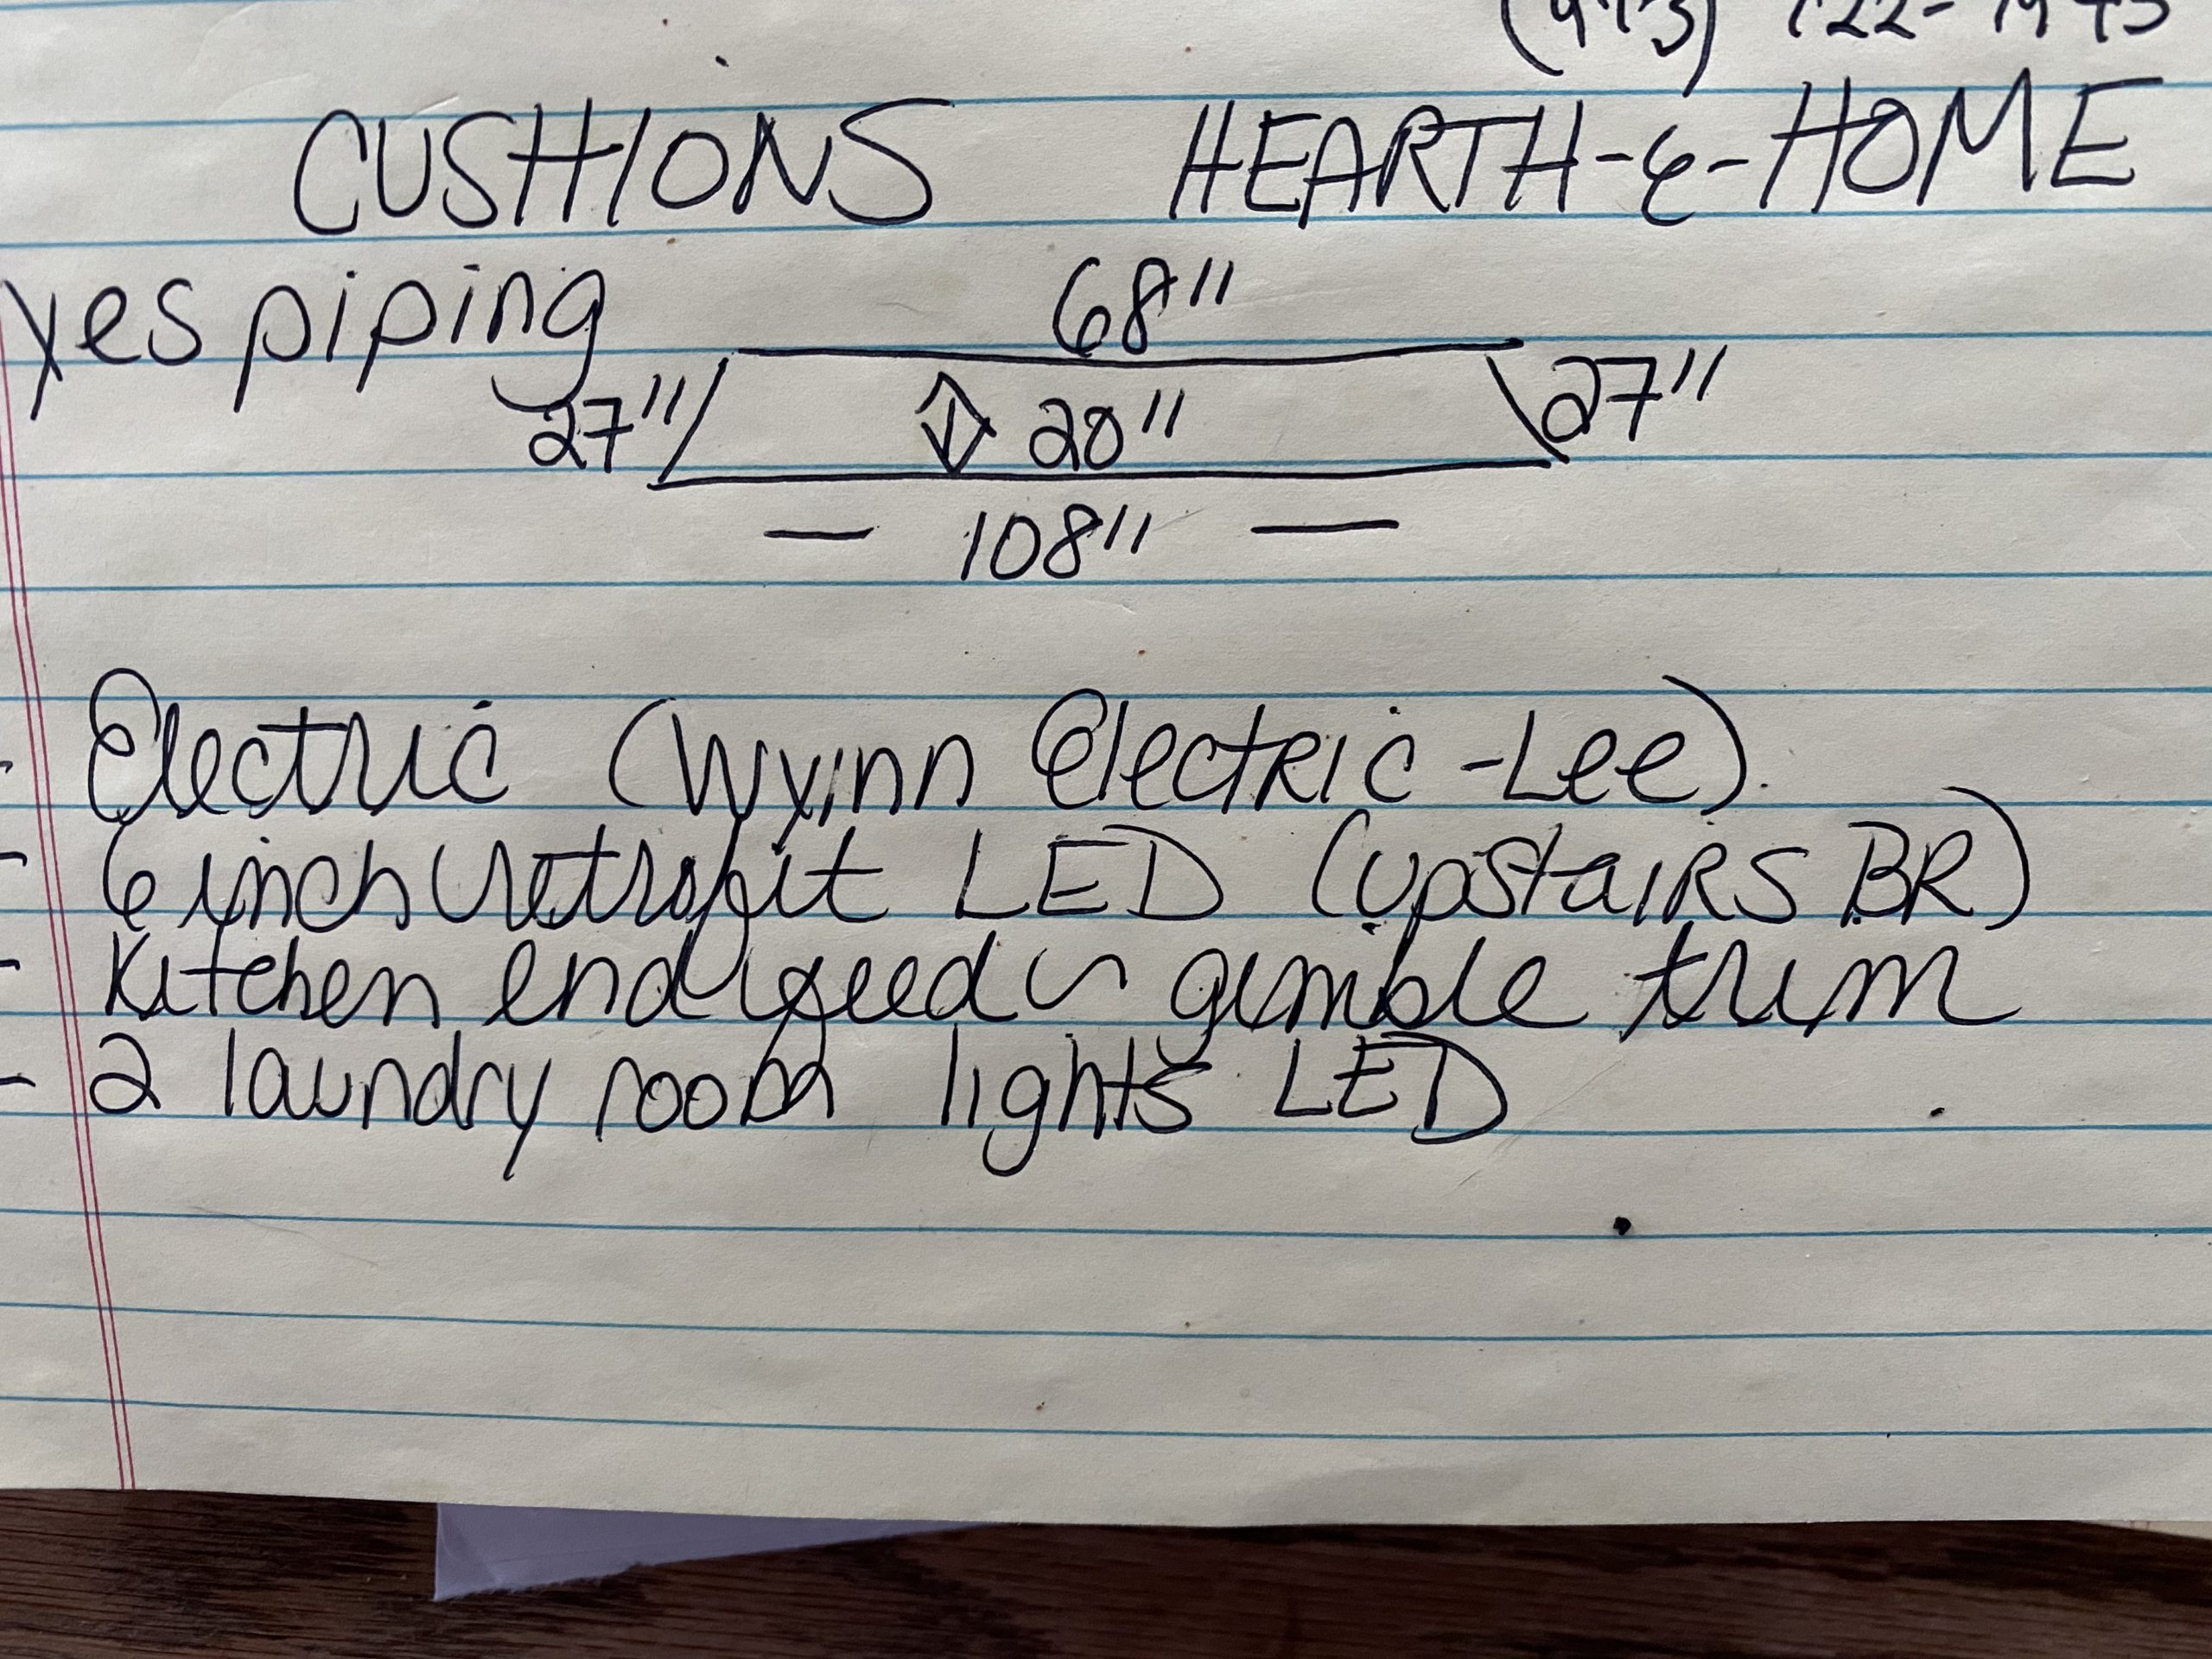 CUSHIONS HEARTH-&-HOME
yes piping 68"
27" 20" 27"
— 108" —
- Electric (Wynn Electric -Lee).
- 6 inch retrofit LED (Upstairs BR)
- Kitchen end gimble trim
- 2 laundry room lights LED